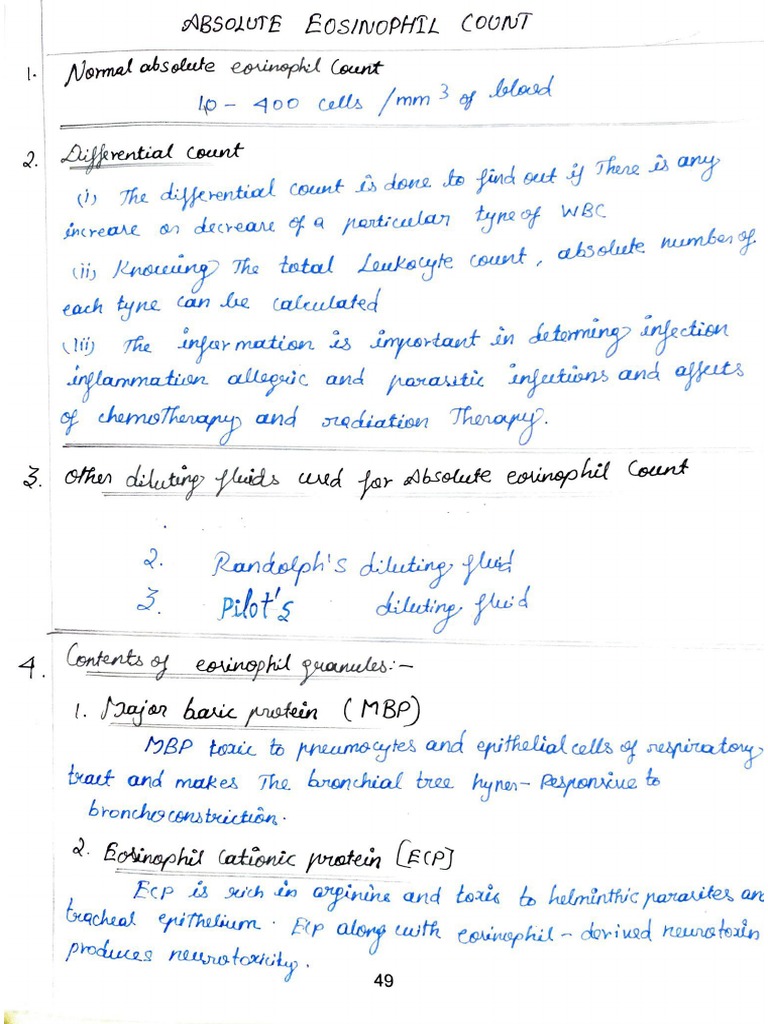 ABSOLUTE EOSINOPHIL COUNT
1. Normal absolute eosinophil count
10 - 400 cells /mm3 of blood
2. Differential count
(i) The differential count is done to find out if There is any
increase or decrease of a particular type of WBC
(ii) Knowing The total Leukocyte count, absolute number of
each type can be calculated
(iii) The information is important in determing infection
inflammation allegric and parasitic infections and affects
of chemoTherapy and radiation Therapy.
3. Other diluting fluids used for Absolute eosinophil Count
2. Randolph's diluting fluid
3. Pilot's diluting fluid
4. Contents of eosinophil granules:-
1. Major basic protein (MBP)
MBP toxic to pneumocytes and epithelial cells of respiratory
tract and makes The bronchial tree hyper-Responsive to
bronchoconstriction.
2. Eosinophil Cationic protein [ECP]
ECP is rich in arginine and toxic to helminthic parasites an
tracheal epithelium. ECP along with eosinophil - derived neurotoxin
produces neurotoxicity.
49